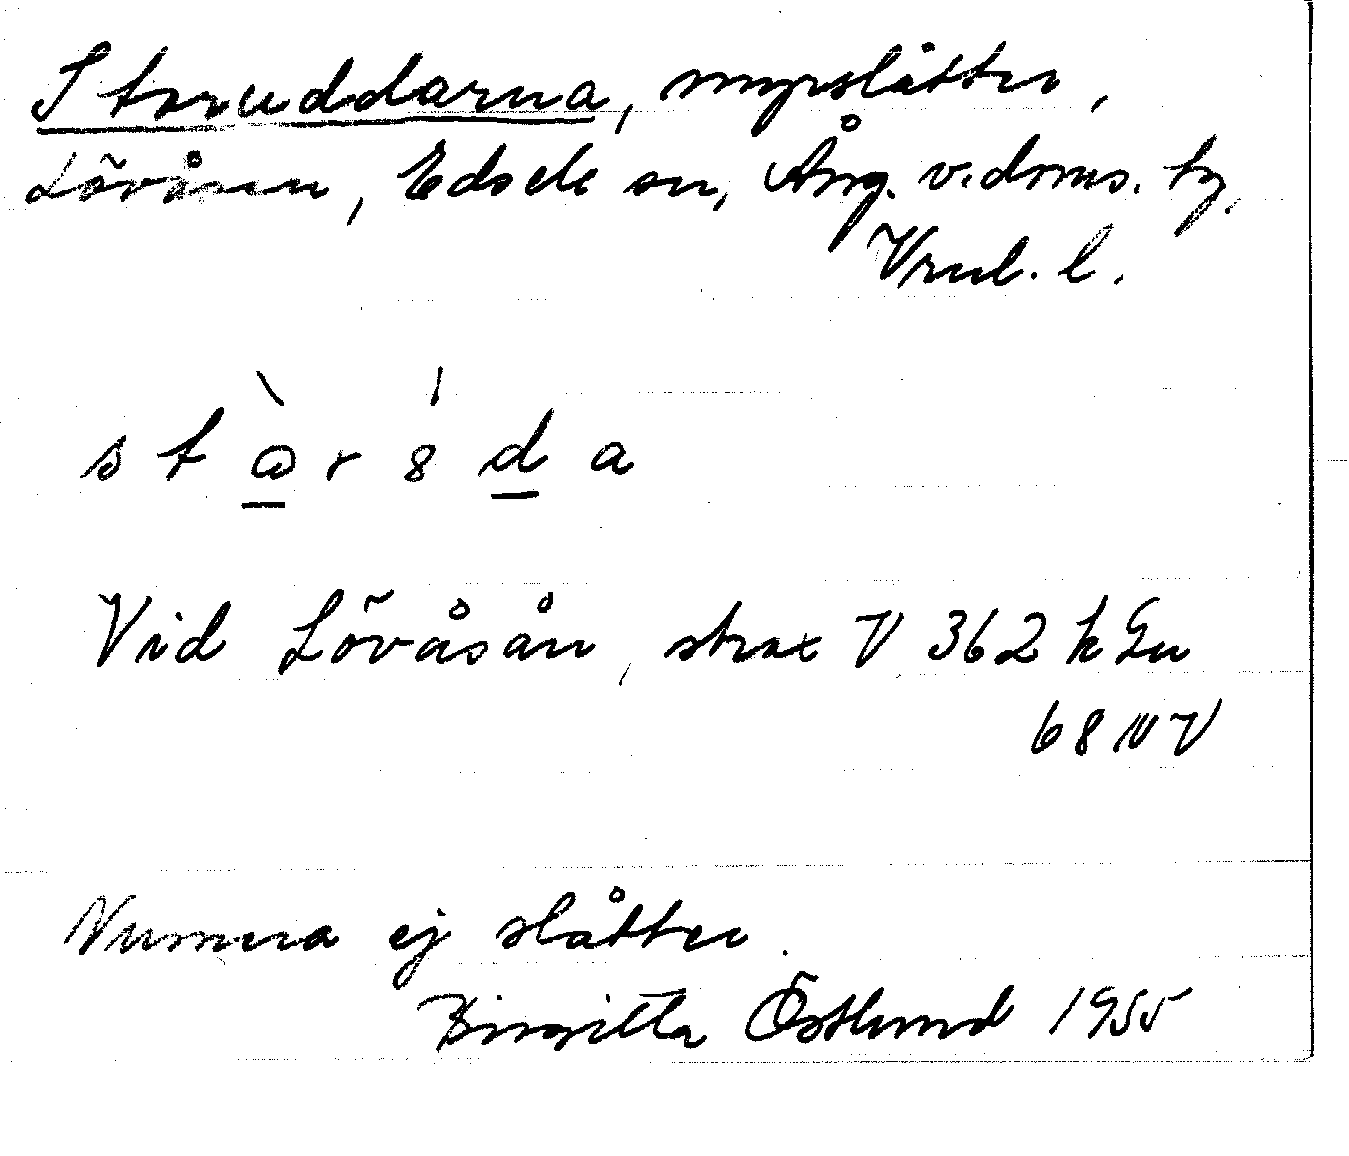 Storuddarna, myrslåtter,
Lövåsen, Edsele sn, Ång. v. doms. tg,
Vnl. l.
s t o r 8 d a
Vid Lövåsån, strax V 362 k En
68 NV
Numera ej slåtter.
Birgitta Östlund 1955